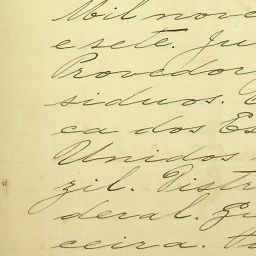 Mil nove
e sete. Ju
Provedor
siduos. E
ca dos Es
Unidos
zil. Distr
deral. Ju
ceira.